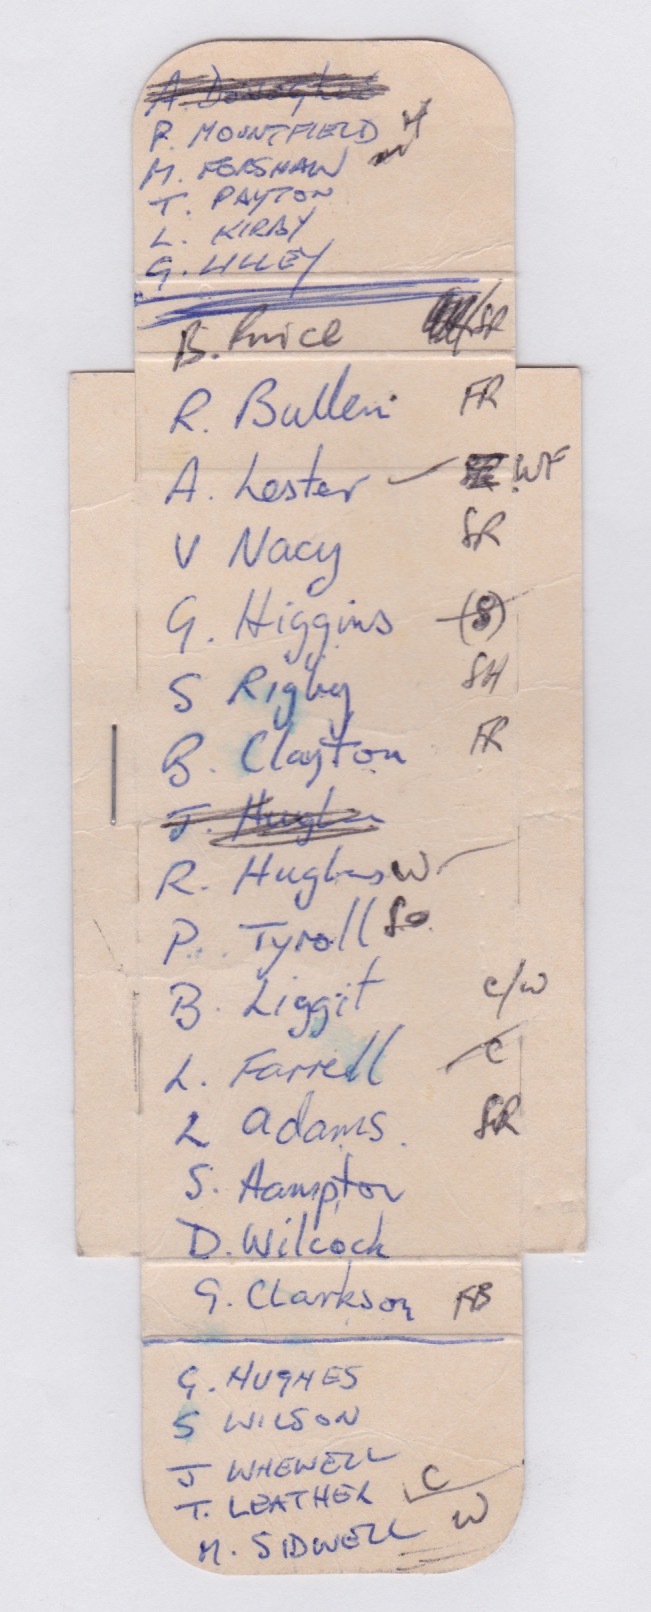 A. Donoghue
R. MOUNTFIELD
M. FORSHAW
T. PAYTON
L. KIRBY
G. LILLEY
B. Price /SR
R. Bullen FR
A. Lester WF
V Nacy SR
G. Higgins (S)
S Rigby SH
B. Clayton FR
J. Hughes
R. Hughes W
P. Tyroll SO
B. Liggit C/W
L. Farrell C
L Adams SR
S. Hampton
D. Wilcock
G. Clarkson FB
G. HUGHES
S WILSON
J WHEWELL
T. LEATHER C
M. SIDWELL W